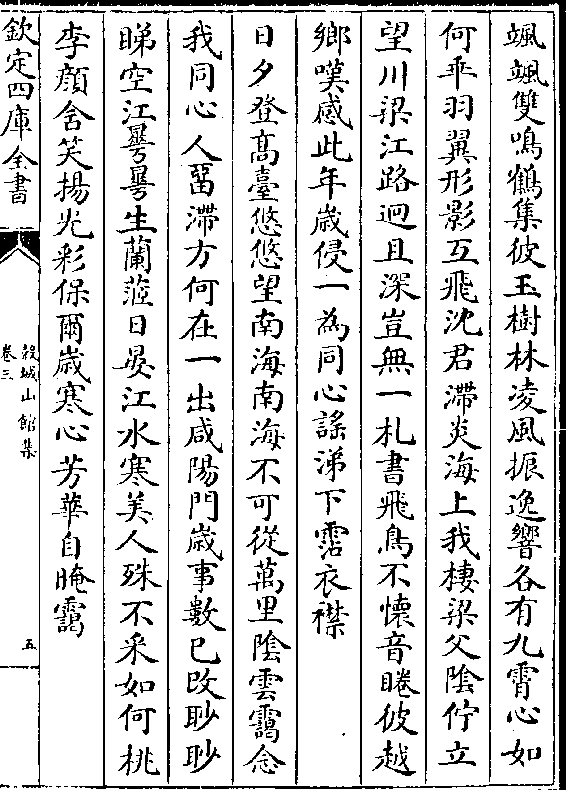 颯颯雙鳴鶴集彼玉樹林凌風振逸響各有九霄心如
何乖羽翼形影互飛沈君滯炎海上我棲梁父陰佇立
望川梁江路迥且深豈無一札書飛鳥不懷音睠彼越
鄉嘆感此年歲侵一為同心謡涕下霑衣襟
日夕登高臺悠悠望南海南海不可從萬里陰雲靄念
我同心人畱滯方何在一出咸陽門歲事數已改眇眇
睇空江㝵㝵生蘭茝日晏江水寒美人殊不采如何桃
李顔含笑揚光彩保爾歲寒心芳華自晻靄
欽定四庫全書
榖城山館集
卷三
五